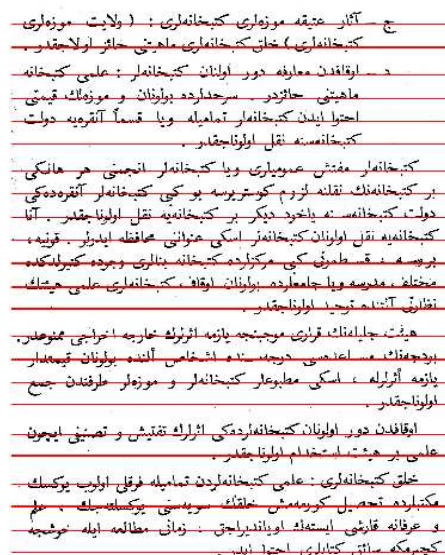 ج ـ آثار عتیقه موزه‌لری کتبخانه‌لری : ( ولایت موزه‌لری
کتبخانه‌لری ) خلق کتبخانه‌لری ماهیتنی حائز اولاجقدر .
د ـ اوقافدن معارفه دور اولنان کتبخانه‌لر : علمی کتبخانه
ماهیتنی حائزدر . سرحدلرده بولونان و موزه‌لك قیمتی
احتوا ایدن کتبخانه‌لر تمامیله ویا قسماً آنقره‌یه دولت
کتبخانه‌سنه نقل اولوناجقدر .
کتبخانه‌لر مفتش عمومیلری ویا کتبخانه‌لر انجمنی هر هانکی
بر کتبخانه‌نك نقلنه لزوم کوستریرسه بو کبی کتبخانه‌لر آنقره‌ده‌کی
دولت کتبخانه‌سنه یاخود دیگر بر کتبخانه‌یه نقل اولوناجقدر . آنا
کتبخانه‌یه نقل اولونان کتبخانه‌لر اسکی عنوانی محافظه ایدرلر . قونیه ،
بروسه ، قسطمونی کبی مرکزلرده کتبخانه بنالری وجوده کتیرلدکده
مختلف مدرسه ویا جامعلرده بولونان اوقاف کتبخانه‌لری علمی هیئتك
نظارتی آلتنده توحید اولوناجقدر .
هیئت جلیله‌نك قراری موجبنجه یازمه اثرلرك خارجه اخراجی ممنوعدر .
بودجه‌نك مساعده‌سی درجه‌سنده اشخاص آلنده بولونان قیمتدار
یازمه اثرلرله ، اسکی مطبوعلر کتبخانه‌لر و موزه‌لر طرفندن جمع
اولوناجقدر .
اوقافدن دور اولونان کتبخانه‌لرده‌کی اثرلرك تفتیش و تصنیفی ایچون
علمی بر هیئت استخدام اولوناجقدر .
خلق کتبخانه‌لری : علمی کتبخانه‌لردن تمامیله فرقلی اولوب یوکسك
مکتبلرده تحصیل کورمه‌مش خلقك سویه‌سنی یوکسلته‌جك ، علم
و عرفانه قارشی ایستك اویاندیراجق ، زمانی مطالعه ایله خوشجه
کچیرمکه سائق کتابلری احتوا ایدر .